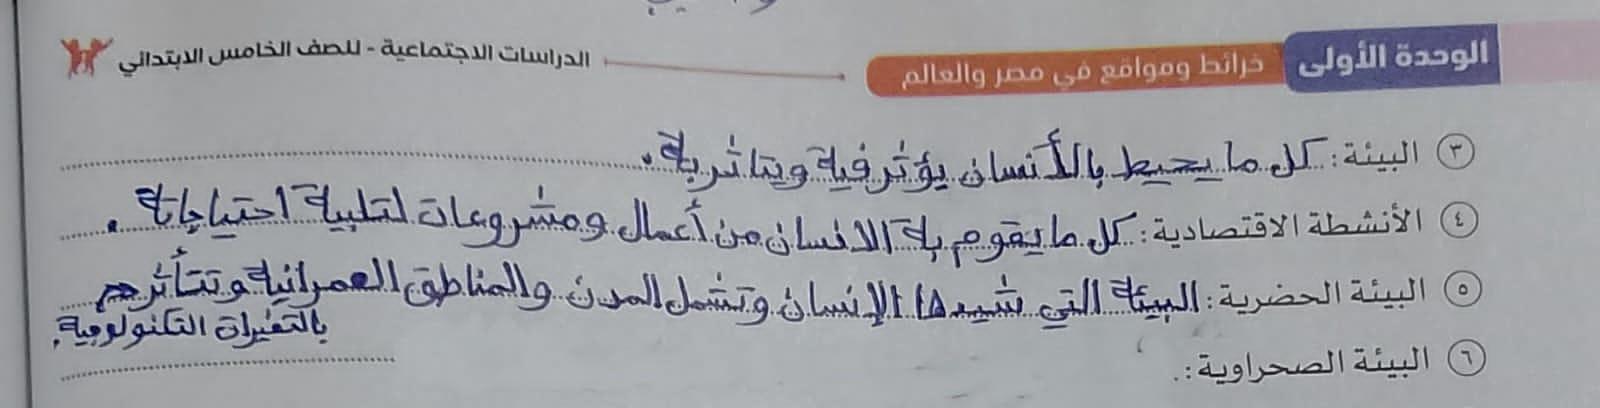 الوحدة الأولى خرائط ومواقع في مصر والعالم الدراسات الاجتماعية - للصف الخامس الابتدائي
٣ البيئة: كل ما يحيط بالأنسان يؤثر فية ويتاثر بة.
٤ الأنشطة الاقتصادية: كل ما يقوم بة الانسان من أعمال ومشروعات لتلبية احتياجاتة.
٥ البيئة الحضرية: البيئة التي شيدها الإنسان وتشمل المدن والمناطق العمرانية وتتأثر
بالتغيرات التكنولوجية.
٦ البيئة الصحراوية: